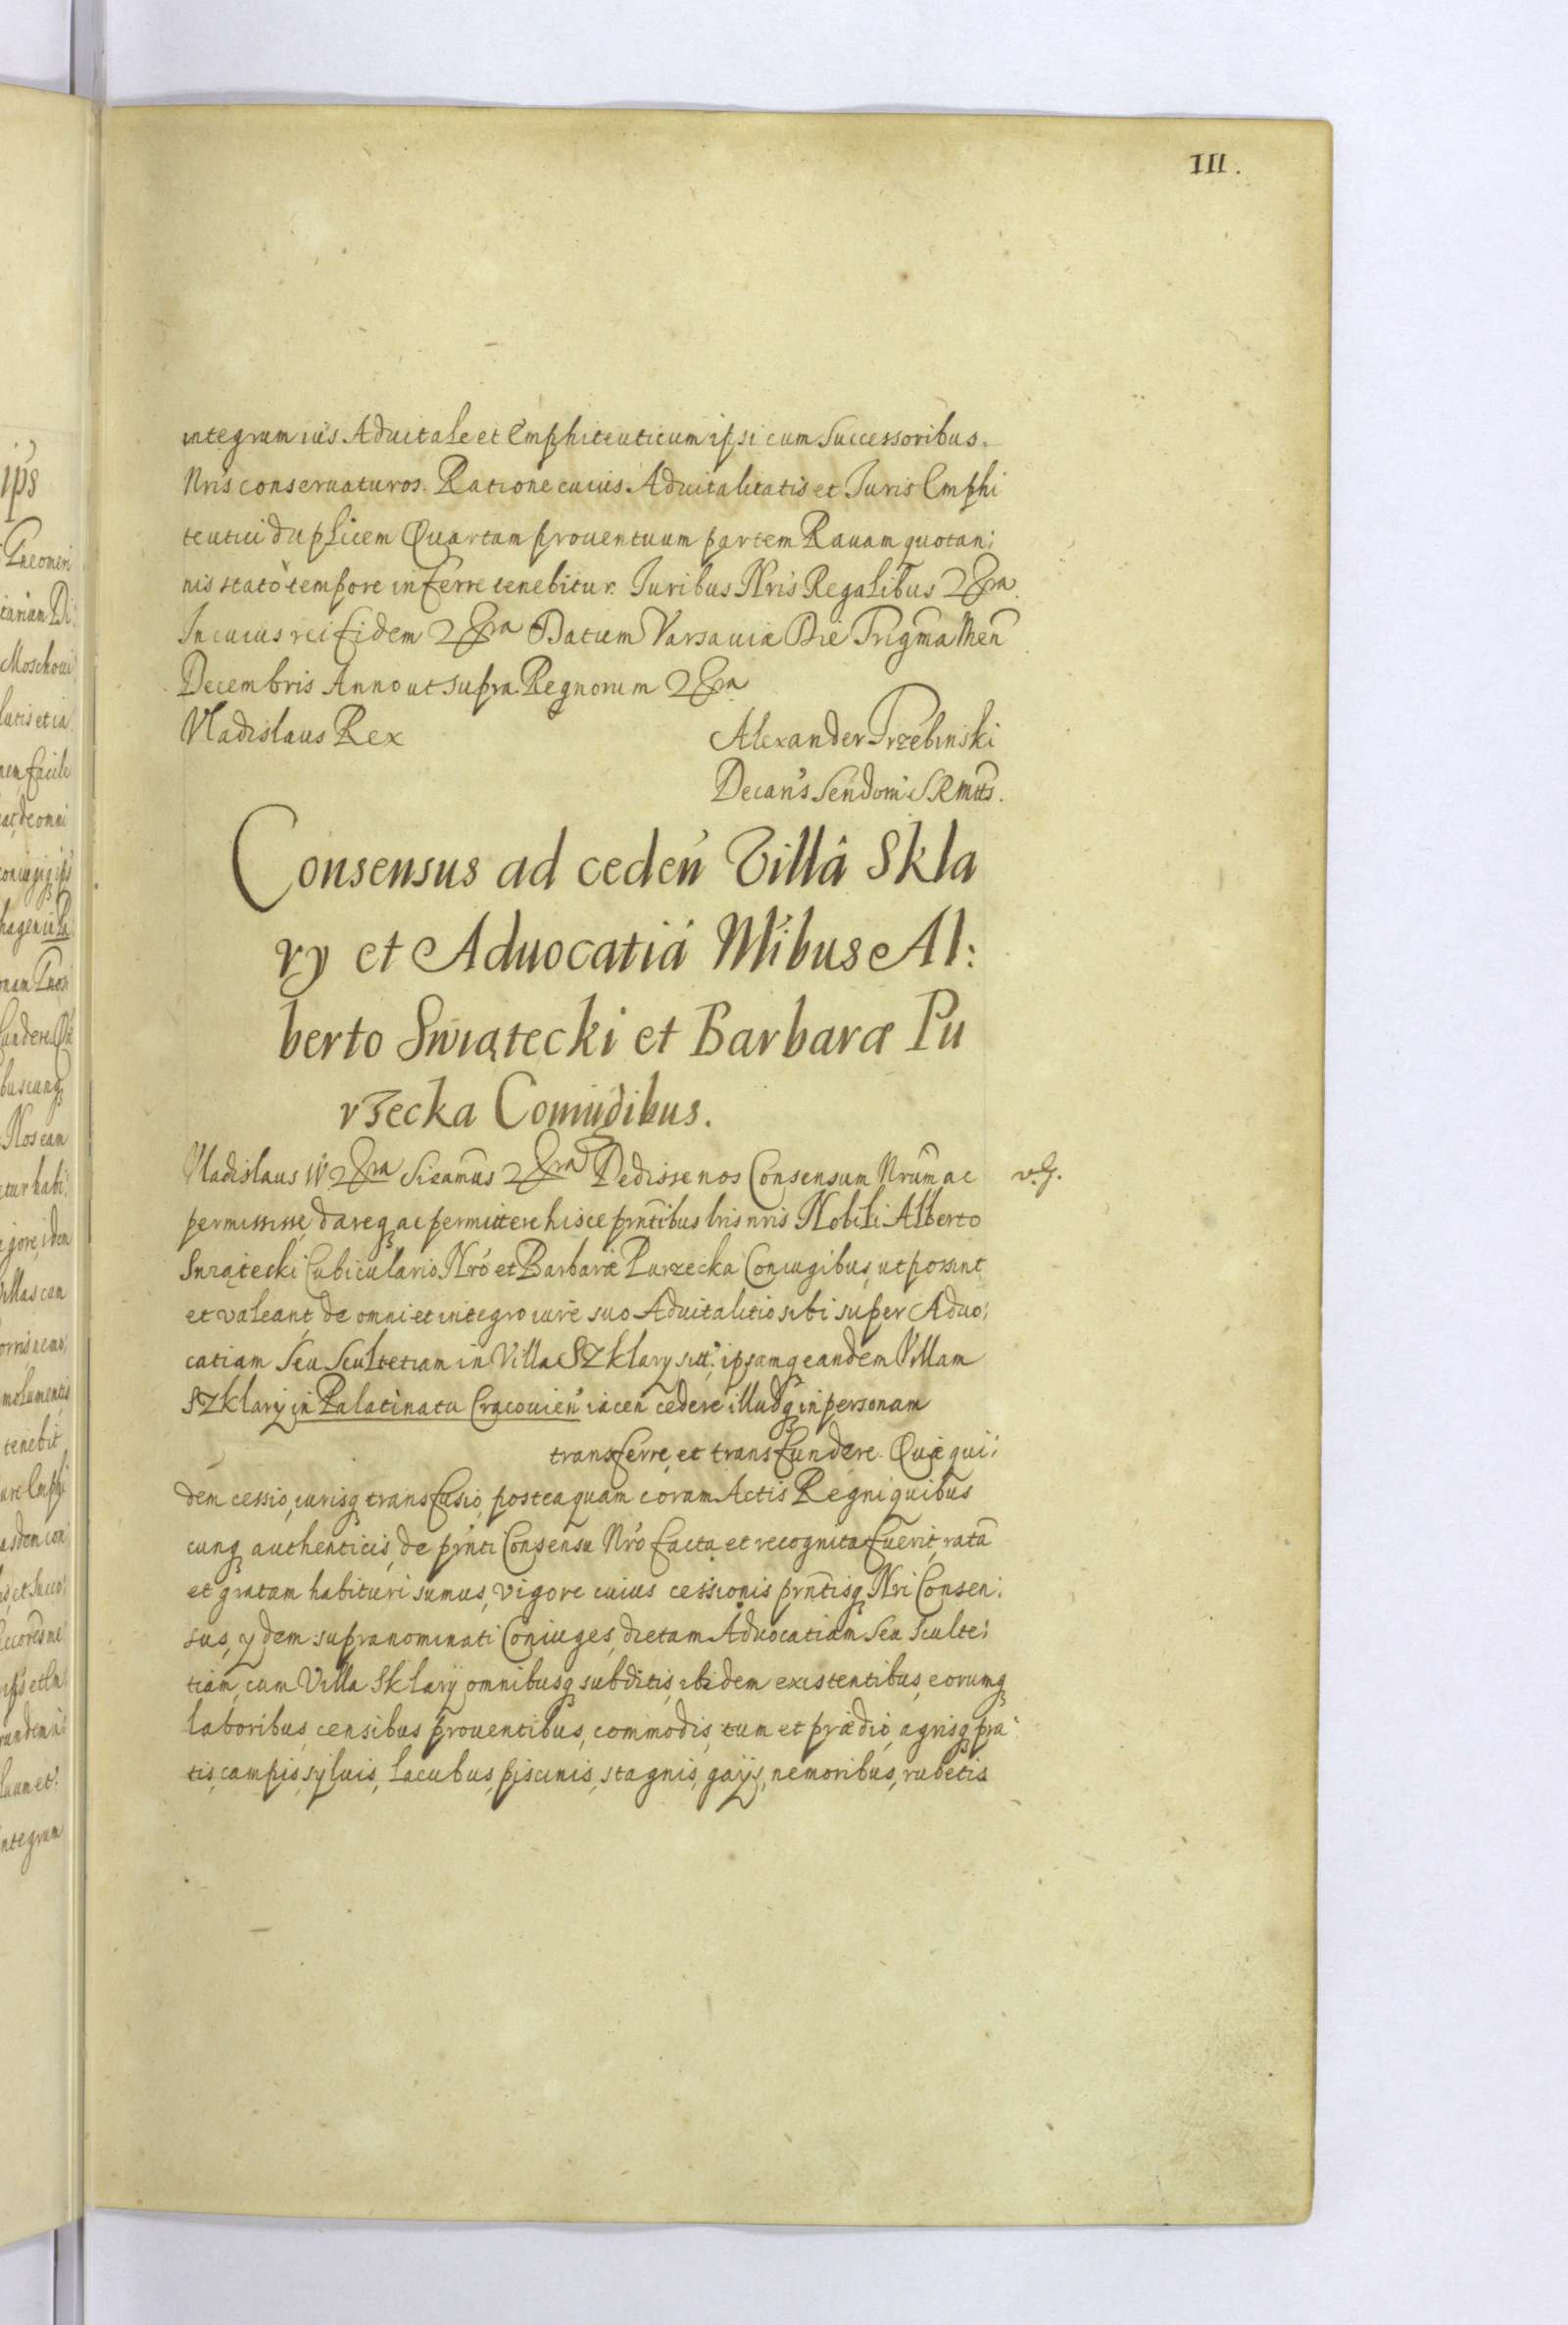 III.
integrum ius Aduitale et Emphiteuticum ipsi cum Successoribus.
Nris conseruaturos. Ratione cuius Aduitalitatis et Juris Emphi
teutici duplicem Quartam prouentuum partem Rauam quotan:
nis stato tempore inferre tenebitur. Juribus Nris Regalibus
In cuius rei fidem Datum Varsauiæ Die Trigma Men
Decembris Anno ut supra. Regnorum
Vladislaus Rex
Alexander Trzebinski
Decan's Sendom' SRMtts.
Consensus ad ceden Villâ Skla
ry et Aduocatiá Nlibus Al:
berto Swiątecki et Barbaræ Pu
rzecka Coniugibus.
Vladislaus IV Sicamus Dedisse nos Consensum Nrum ac
v. G.
permisisse, dareq ac permittere hisce prntibus lris nris Nobili Alberto
Swiątecki Cubiculario Nró et Barbaræ Purzecka Coniugibus, ut possint
et valeant, de omni et integro iure suo Aduitalitio sibi super Aduo:
catiam Seu Scultetiam in Villa SZklary sitt: ipsamq eandem Villam
SZklary in Palatinatu Cracouien' iacen cedere illudq in personam
transferre, et transfundere. Quæ qui:
dem cessio, iurisq transfusio, posteaquam coram Actis Regni quibus
cunq authenticis, de prnti Consensu Nro facta et recognita fuerit, ratã
et gratam habituri sumus, vigore cuius cessionis prntisq Nri Consen:
sus, ydem supranominati Coniuges, dictam Aduocatiam Seu Sculte:
tiam, cum Villa Sklary omnibusq subditis, ibidem existentibus, eorumq
laboribus, censibus prouentibus, commodis, tum et prædio, agrisq pra:
tis, campis, syluis, lacubus, piscinis, stagnis, gays, nemoribus, rubetis